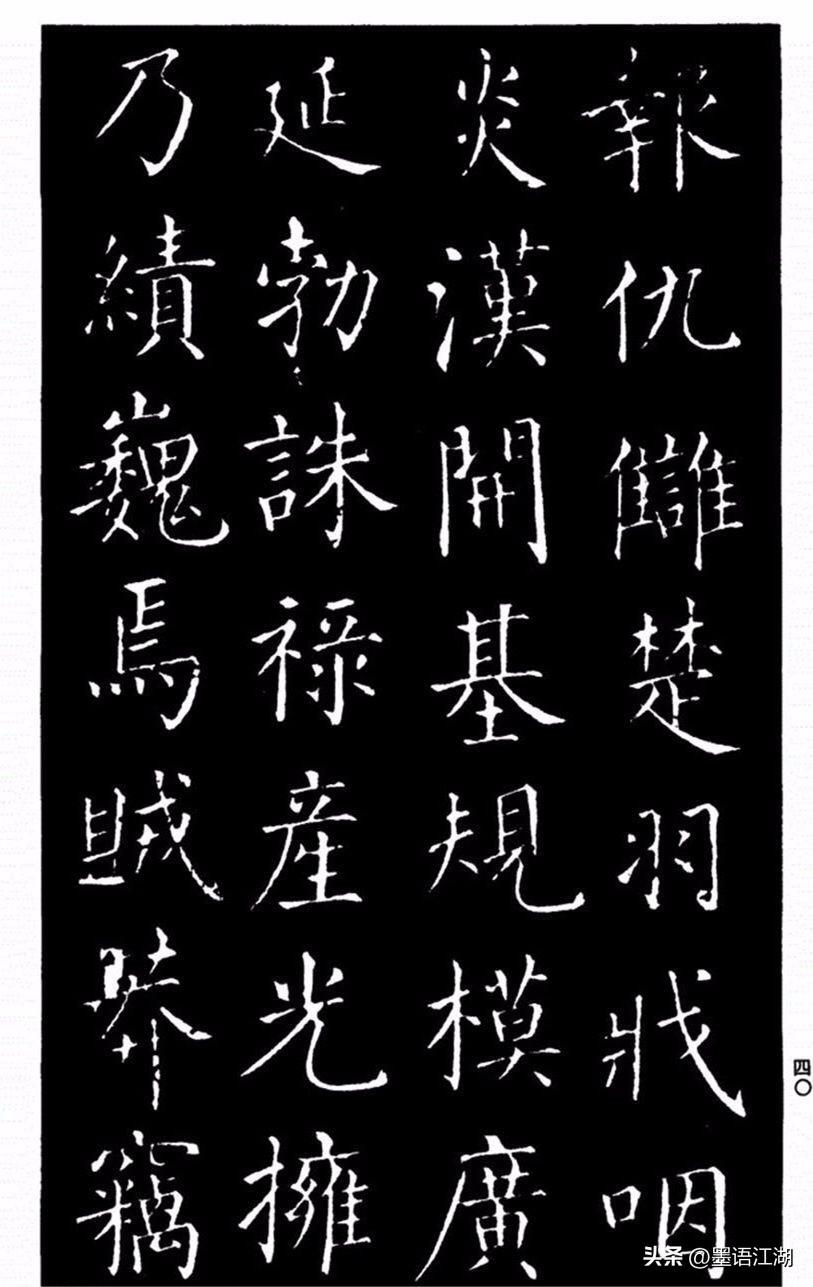 報仇讎楚羽戕咽
炎漢開基規模廣
延勃誅祿產光擁
乃績巍焉賊莽竊
四〇
头条 @墨语江湖